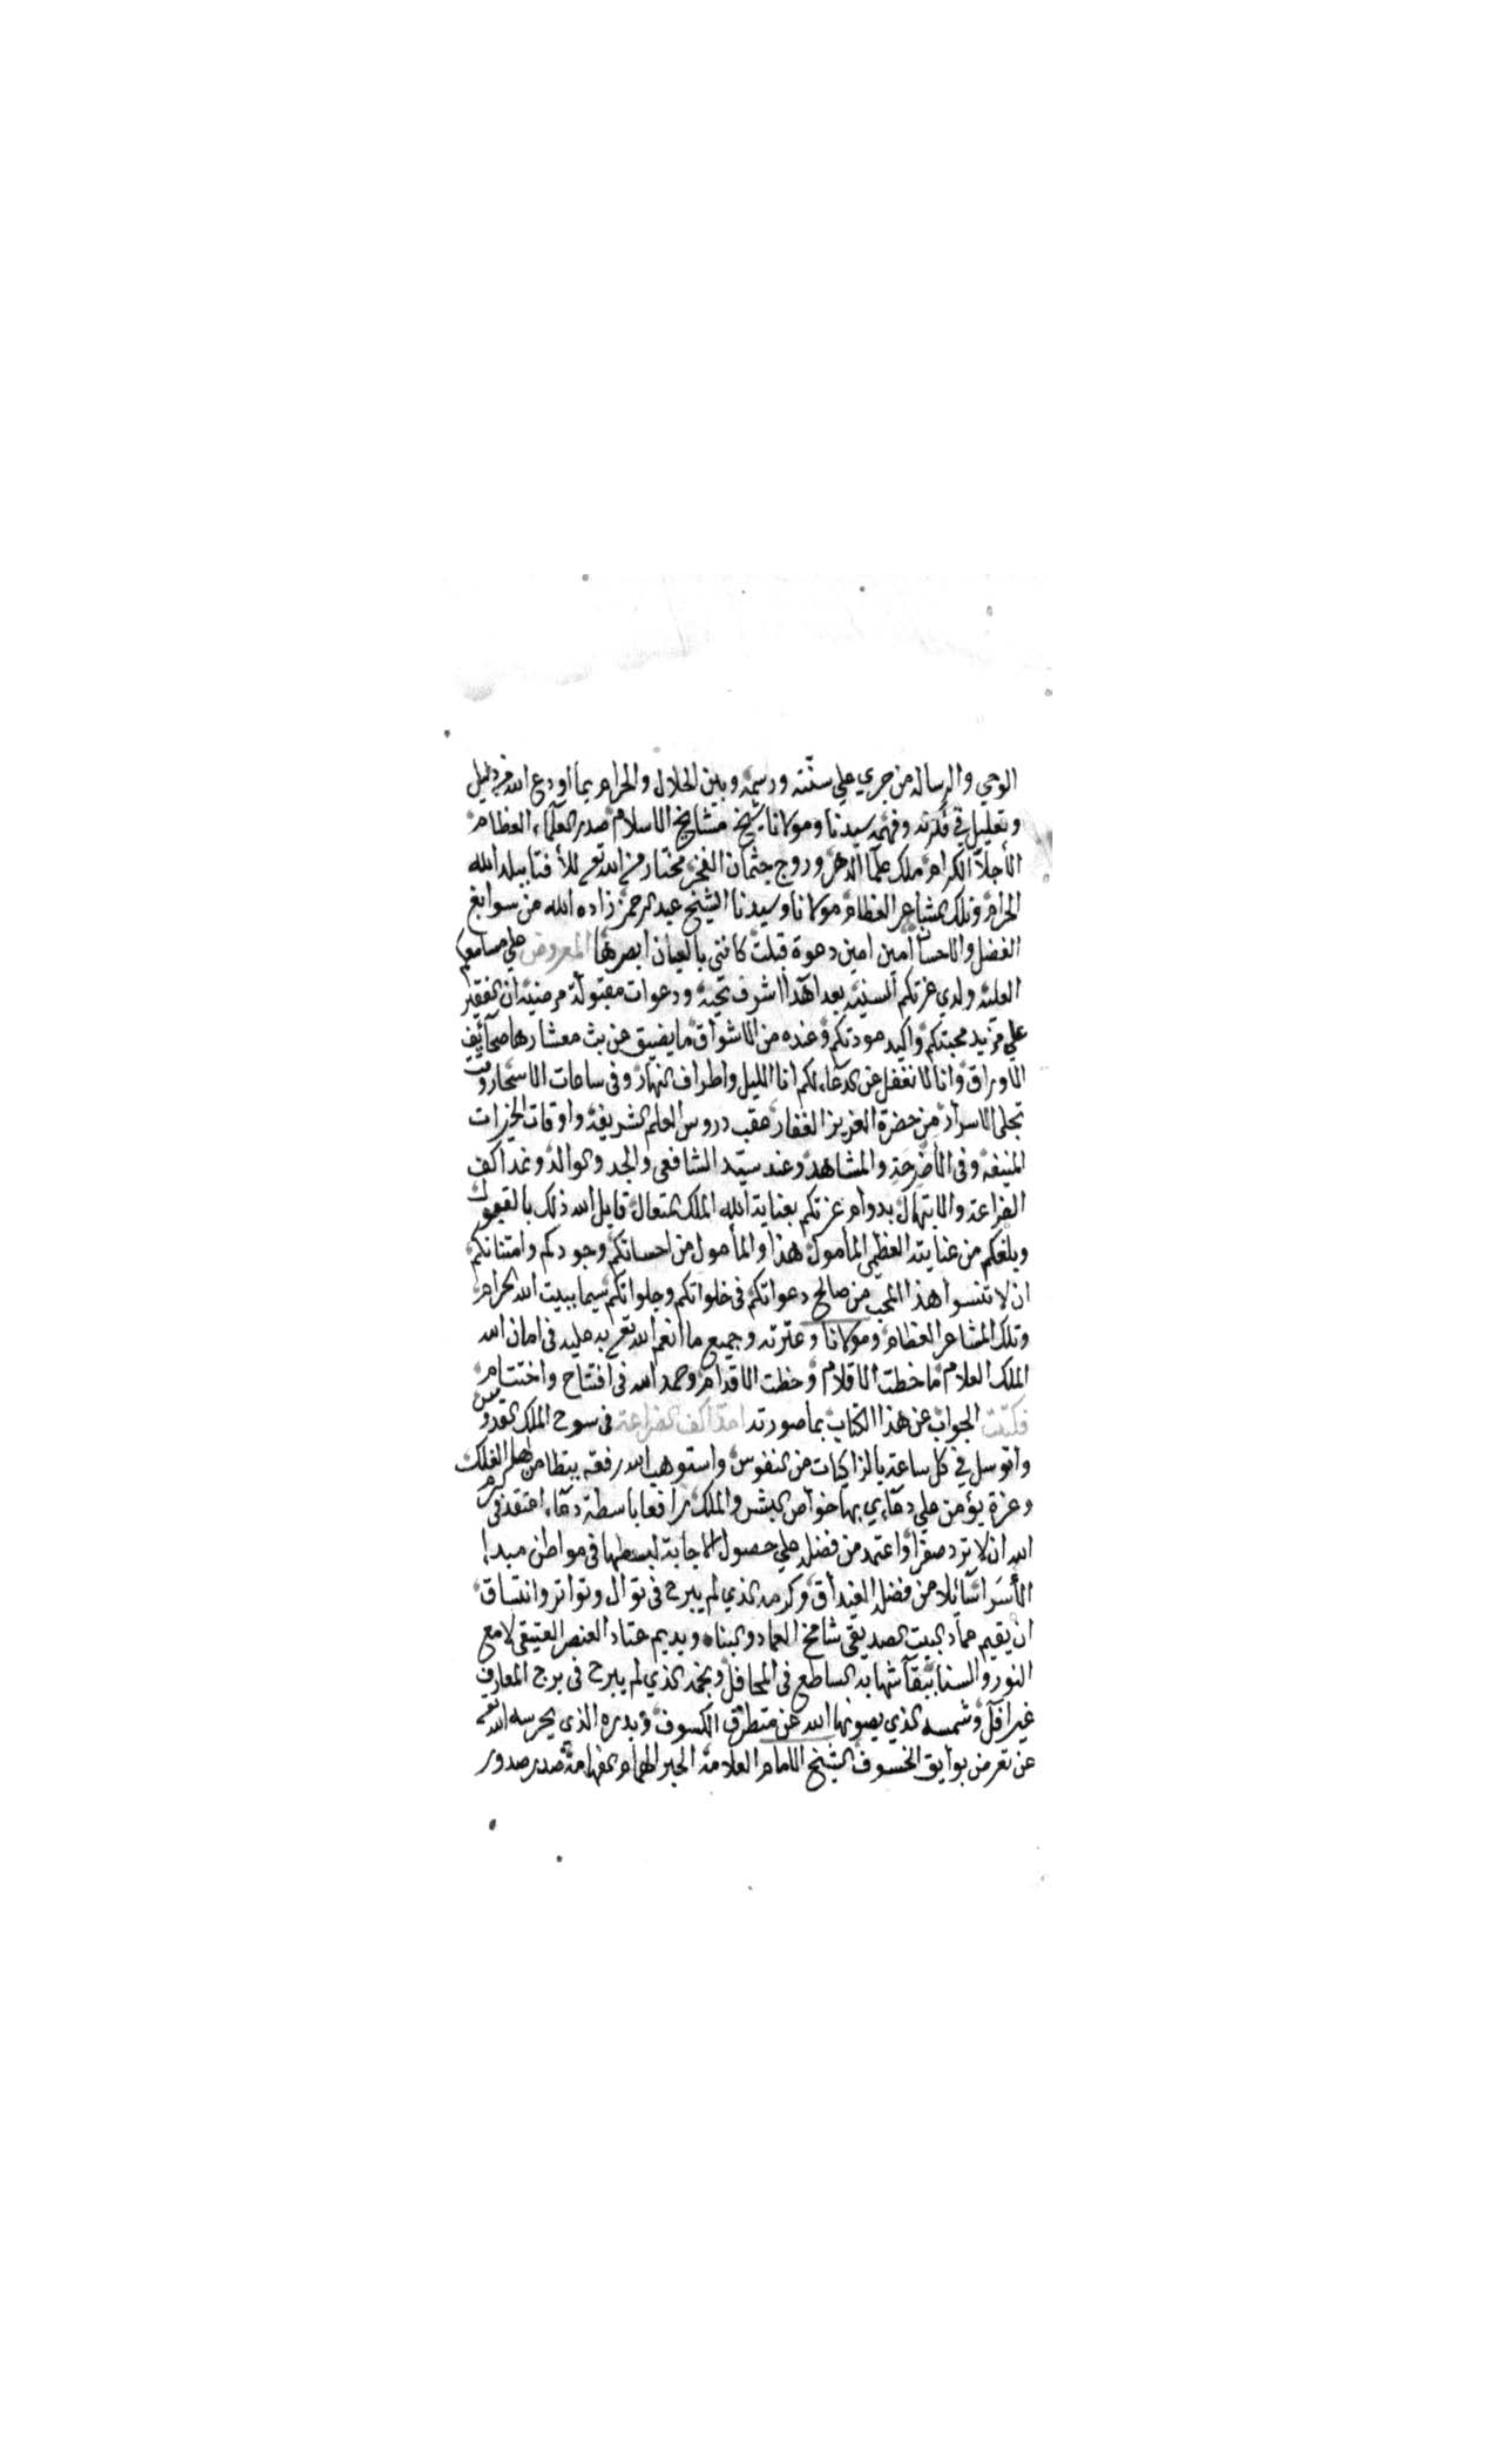 الوحي والرساله من جري علي سنّته ورسمه وبين الحلال والحرام بما اودع الله من دليل
وتعليل في فكرته وفهمه سيدنا ومولانا شيخ مشايخ الاسلام صدر العلماء العظام
الأجلاّ الكرام ملك علمآ الدهر وروح جثمان الفخر مختار من الله تعم للأفتا ببلد الله
الحرام وتلك المشاعر العظام مولانا وسيدنا الشيخ عبد الرحمن زاده الله من سوابغ
الفضل والاحسان امين امين دعوة قبلت كانني بالعيان ابصرها المعروض علي مسامعكم
العليه ولدي عزتكم السنيه بعد اهدآ اشرف تحيه ودعوات مقبولة مرضيه ان الفقير
علي مزيد محبتكم واكيد مودتكم وعنده من الاشواق ما يضيق عن بث معشارها صحآئف
الاوراق وانا لا نغفل عن الدعاء لكم انا الليل واطراف النهار وفي ساعات الاسحار ووقت
تجلي الاسرار من حضرة العزيز الغفار عقب دروس العلم الشريفه واوقات الخيرات
المنيفه وفي الأضرحة والمشاهد وعند سيّد الشافعي والجد والوالد ونمد اكف
الضراعة والابتهال بدوام عزتكم بعناية الله الملك المتعال قابل الله ذلك بالقبول
وبلغكم من عنايته العظمي المأمول هذا والمأمول من احسانكم وجودكم وامتنانكم
ان لا تنسوا هذا المحب من صالح دعواتكم في خلواتكم وجلواتكم سيما ببيت الله الحرام
وتلك المشاعر العظام ومولانا وعترته وجميع ما انعم الله تعم به عليه في امان الله
الملك العلام ما خطت الاقلام وخطت الاقدام وحمد الله في افتتاح واختتام
فكتبت الجواب عن هذا الكتاب بما صورته امدّ اكف الضراعة في سوح الملك القدوس
واتوسل في كل ساعة بالزاكيات من النفوس واستوهب الله رفقه ينتظا من اهل الفلك
وعزة يؤمن علي دعآءي بها خواص البشر والملك رافعا باسطة دعاء اعتقد في كرم
الله ان لا ترد صفرا واعتمد من فضله علي حصول الاجابة لبسطها في مواطن مبدا
الأسرا سآئلا من فضله الغيداق وكرمه الذي لم يبرح في توال وتواتر وانتساق
ان يقيم عماد البيت الصديقي شامخ العماد والبناء ويديم عتاد العنصر العتيقي لامع
النور والسنا ببقآ شهابه الساطع في المحافل ونجمه الذي لم يبرح في برج المعارف
غير افل وشمسه الذي يصونها الله عن متطرق الكسوف وبدره الذي يحرسه الله تعم
عن تعرض بوايق الخسوف الشيخ الامام العلامة الحبر الهمام الفهامة صدر صدور